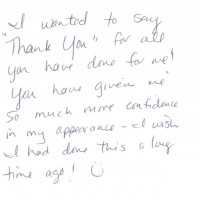 I wanted to say
"Thank You" for all
you have done for me!
You have given me
so much more confidence
in my appearance - I wish
I had done this a long
time ago! ☺